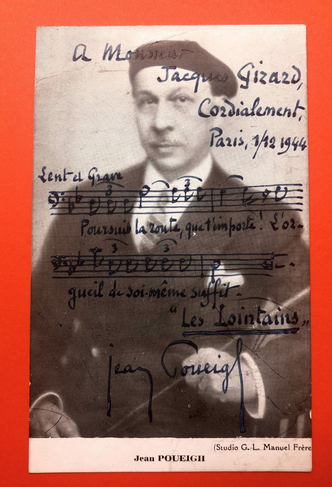 A Monsieur
Jacques Girard,
Cordialement,
Paris, 1/12 1944
Lent et Grave
3 3
Poursuis ta route, que t'importe! L'or-
3 3
gueil de soi-même suffit.
"Les Lointains"
Jean Poueigh
(Studio G.-L. Manuel Frère
Jean POUEIGH